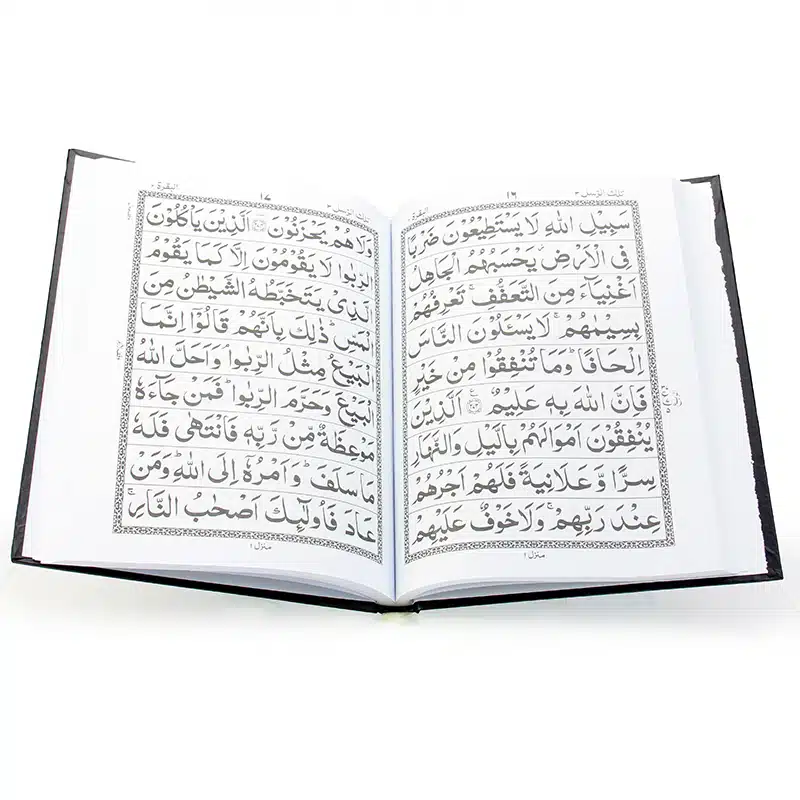 البقرة ٢
١٦
تلك الرسل ٣
سَبِيْلِ اللّٰهِ لَا يَسْتَطِيْعُوْنَ ضَرْبًا
فِى الْاَرْضِ ۫ يَحْسَبُهُمُ الْجَاهِلُ
اَغْنِيَآءَ مِنَ التَّعَفُّفِ ۚ تَعْرِفُهُمْ
بِسِيْمٰىهُمْ ۚ لَا يَسْـَٔلُوْنَ النَّاسَ
اِلْحَافًا ؕ وَمَا تُنْفِقُوْا مِنْ خَيْرٍ
فَاِنَّ اللّٰهَ بِهٖ عَلِيْمٌ ۞ اَلَّذِيْنَ
يُنْفِقُوْنَ اَمْوَالَهُمْ بِالَّيْلِ وَالنَّهَارِ
سِرًّا وَّعَلَانِيَةً فَلَهُمْ اَجْرُهُمْ
عِنْدَ رَبِّهِمْ ۚ وَلَا خَوْفٌ عَلَيْهِمْ
منزل ١
البقرة ٢
١٧
تلك الرسل ٣
وَلَا هُمْ يَحْزَنُوْنَ ۞ اَلَّذِيْنَ يَاْكُلُوْنَ
الرِّبٰوا لَا يَقُوْمُوْنَ اِلَّا كَمَا يَقُوْمُ
الَّذِىْ يَتَخَبَّطُهُ الشَّيْطٰنُ مِنَ
الْمَسِّ ؕ ذٰلِكَ بِاَنَّهُمْ قَالُوْٓا اِنَّمَا
الْبَيْعُ مِثْلُ الرِّبٰوا ۘ وَاَحَلَّ اللّٰهُ
الْبَيْعَ وَحَرَّمَ الرِّبٰوا ؕ فَمَنْ جَآءَهٗ
مَوْعِظَةٌ مِّنْ رَّبِّهٖ فَانْتَهٰى فَلَهٗ
مَا سَلَفَ ؕ وَاَمْرُهٗٓ اِلَى اللّٰهِ ؕ وَمَنْ
عَادَ فَاُولٰٓئِكَ اَصْحٰبُ النَّارِ ۚ
منزل ١